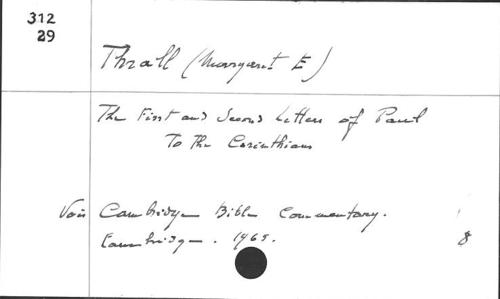 312
29
Thrall (Margaret E)
The First and Second Letters of Paul
To The Corinthians
Voir Cambridge Bible Commentary.
Cambridge. 1965. 8